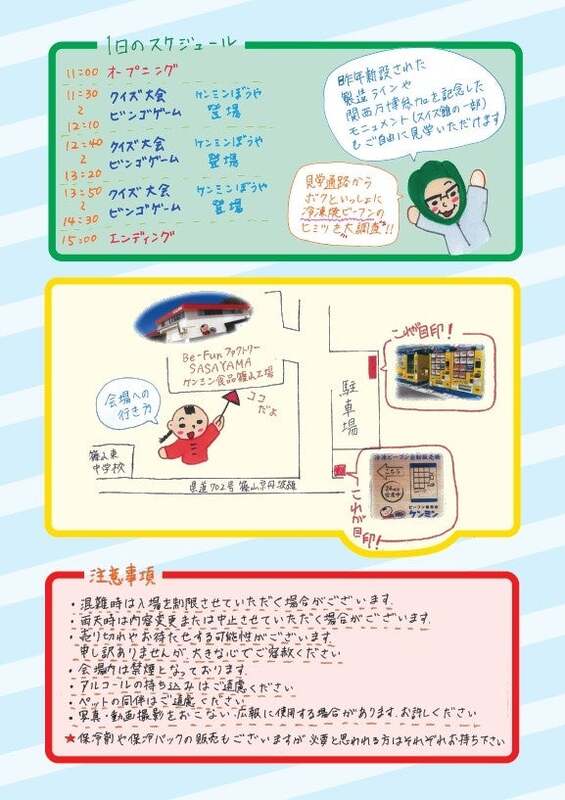 1日のスケジュール
11:00 オープニング
11:30 クイズ大会 ケンミンぼうや
〜 ビンゴゲーム 登場
12:10
12:40 クイズ大会 ケンミンぼうや
〜 ビンゴゲーム 登場
13:20
13:50 クイズ大会 ケンミンぼうや
〜 ビンゴゲーム 登場
14:30
15:00 エンディング
昨年新設された
製造ラインや
関西万博参加を記念した
モニュメント(スイス館の一部)
もご自由に見学いただけます
見学通路から
ボクといっしょに
冷凍焼ビーフンの
ヒミツを"大調査"!!
Be-Funファクトリー
SASAYAMA
ケンミン食品篠山工場
会場への
行き方
ココ
だよ
篠山東
中学校
県道702号
駐車場
これが目印!
冷凍ビーフン自動販売機
こちら
24時間
営業中
ケンミン
これが
目印!
注意事項
・混雑時は入場を制限させていただく場合がございます.
・雨天時は内容変更または中止させていただく場合がございます.
・売り切れやお待たせする可能性がございます.
申し訳ありませんが、大きな心でご容赦ください
・会場内は禁煙となっております.
・アルコールの持ち込みはご遠慮ください
・ペットの同伴はご遠慮ください
・写真・動画撮影をおこない、広報に使用する場合があります.お許しください
★保冷剤や保冷バックの販売もございますが 必要と思われる方はそれぞれお持ち下さい